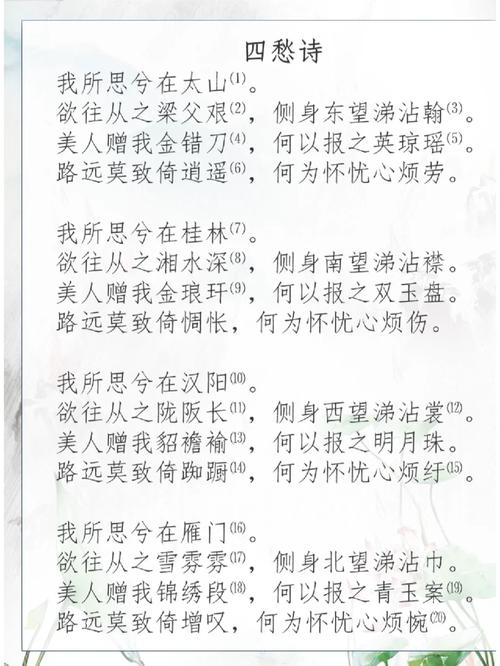 四愁诗
我所思兮在太山⑴。
欲往从之梁父艰⑵，侧身东望涕沾翰⑶。
美人赠我金错刀⑷，何以报之英琼瑶⑸。
路远莫致倚逍遥⑹，何为怀忧心烦劳。
我所思兮在桂林⑺。
欲往从之湘水深⑻，侧身南望涕沾襟。
美人赠我金琅玕⑼，何以报之双玉盘。
路远莫致倚惆怅，何为怀忧心烦伤。
我所思兮在汉阳⑽。
欲往从之陇阪长⑾，侧身西望涕沾裳⑿。
美人赠我貂襜褕⒀，何以报之明月珠。
路远莫致倚踟蹰⒁，何为怀忧心烦纡⒂。
我所思兮在雁门⒃。
欲往从之雪雰雰⒄，侧身北望涕沾巾。
美人赠我锦绣段⒅，何以报之青玉案⒆。
路远莫致倚增叹，何为怀忧心烦惋⒇。